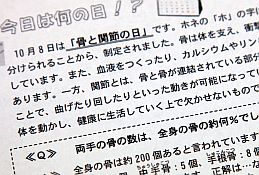 今日は何の日!?
10月8日は、「骨と関節の日」です。ホネの「ホ」の字は
分けられることから、制定されました。骨は体を支え、衝撃
しています。また、血液をつくったり、カルシウムやリン
あります。一方、関節とは、骨と骨が連結されている部分
ことで、曲げたり回したりといった動きが可能になってい
体を動かし、健康に生活していく上で欠かせないもので
≪Q≫ 両手の骨の数は、全身の骨の約何%でし
全身の骨は約200個あると言われています
中手骨:5個、
正解は